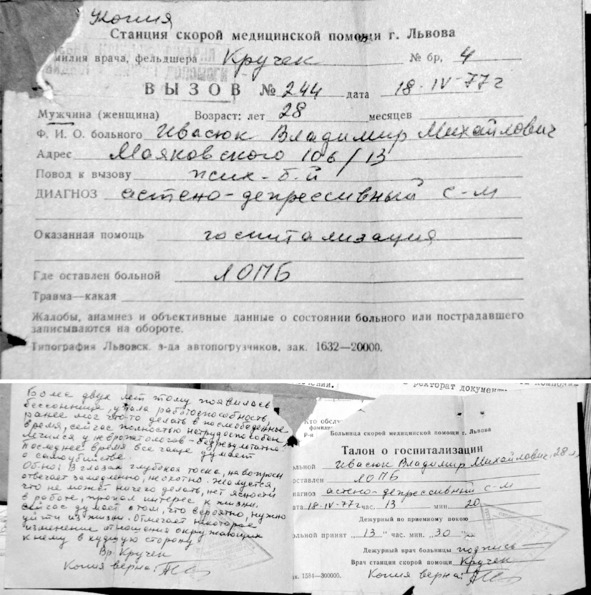 Копия
Станция скорой медицинской помощи г. Львова
милия врача, фельдшера Кручек № бр. 4
ВЫЗОВ № 244 дата 18·IV-77г
Мужчина (женщина) Возраст: лет 28 месяцев
Ф. И. О. больного Ивасюк Владимир Михайлович
Адрес Маяковского 106/13
Повод к вызову псих-б-й
ДИАГНОЗ астено-депрессивный с-м
Оказанная помощь госпитализация
Где оставлен больной ЛОПБ
Травма—какая
Жалобы, анамнез и объективные данные о состоянии больного или пострадавшего
записываются на обороте.
Типография Львовск. з-да автопогрузчиков, зак. 1632—20000.
Более двух лет тому появилась
бессонница, упала работоспособность,
ранее мог что-то делать в послеобеденное
время, сейчас полностью нетрудоспособен
лечился у невропатологов - безрезультатно
последнее время все чаще думает
о самоубийстве.
Об-но: В глазах глубокая тоска, на вопросы
отвечает замедленно, неохотно. Жалуется,
что не может ничего делать, нет ясности
в работе, пропал интерес к жизни.
Сейчас думает о том, что вероятно, нужно
уйти из жизни. Отмечает некоторое
изменение отношения окружающих
к нему в худшую сторону
Вр. Кручек
Копия верна:
ректорат докумен
Кто обслу
фамили
Р-а
Больница скорой медицинской помощи г. Львова
Талон о госпитализации
льной Ивасюк Владимир Михайлович, 28 л
оставлен ЛОПБ
иагноз астено-депрессивный с-м
ата 18-IV-77г час. 13 мин. 20
Дежурный по приемному покою
ольной принят 13 " час. мин. 30 "
Дежурный врач больницы подпись
Врач станции скорой пом. Кручек
Копия верна:
к. 1584—300000.